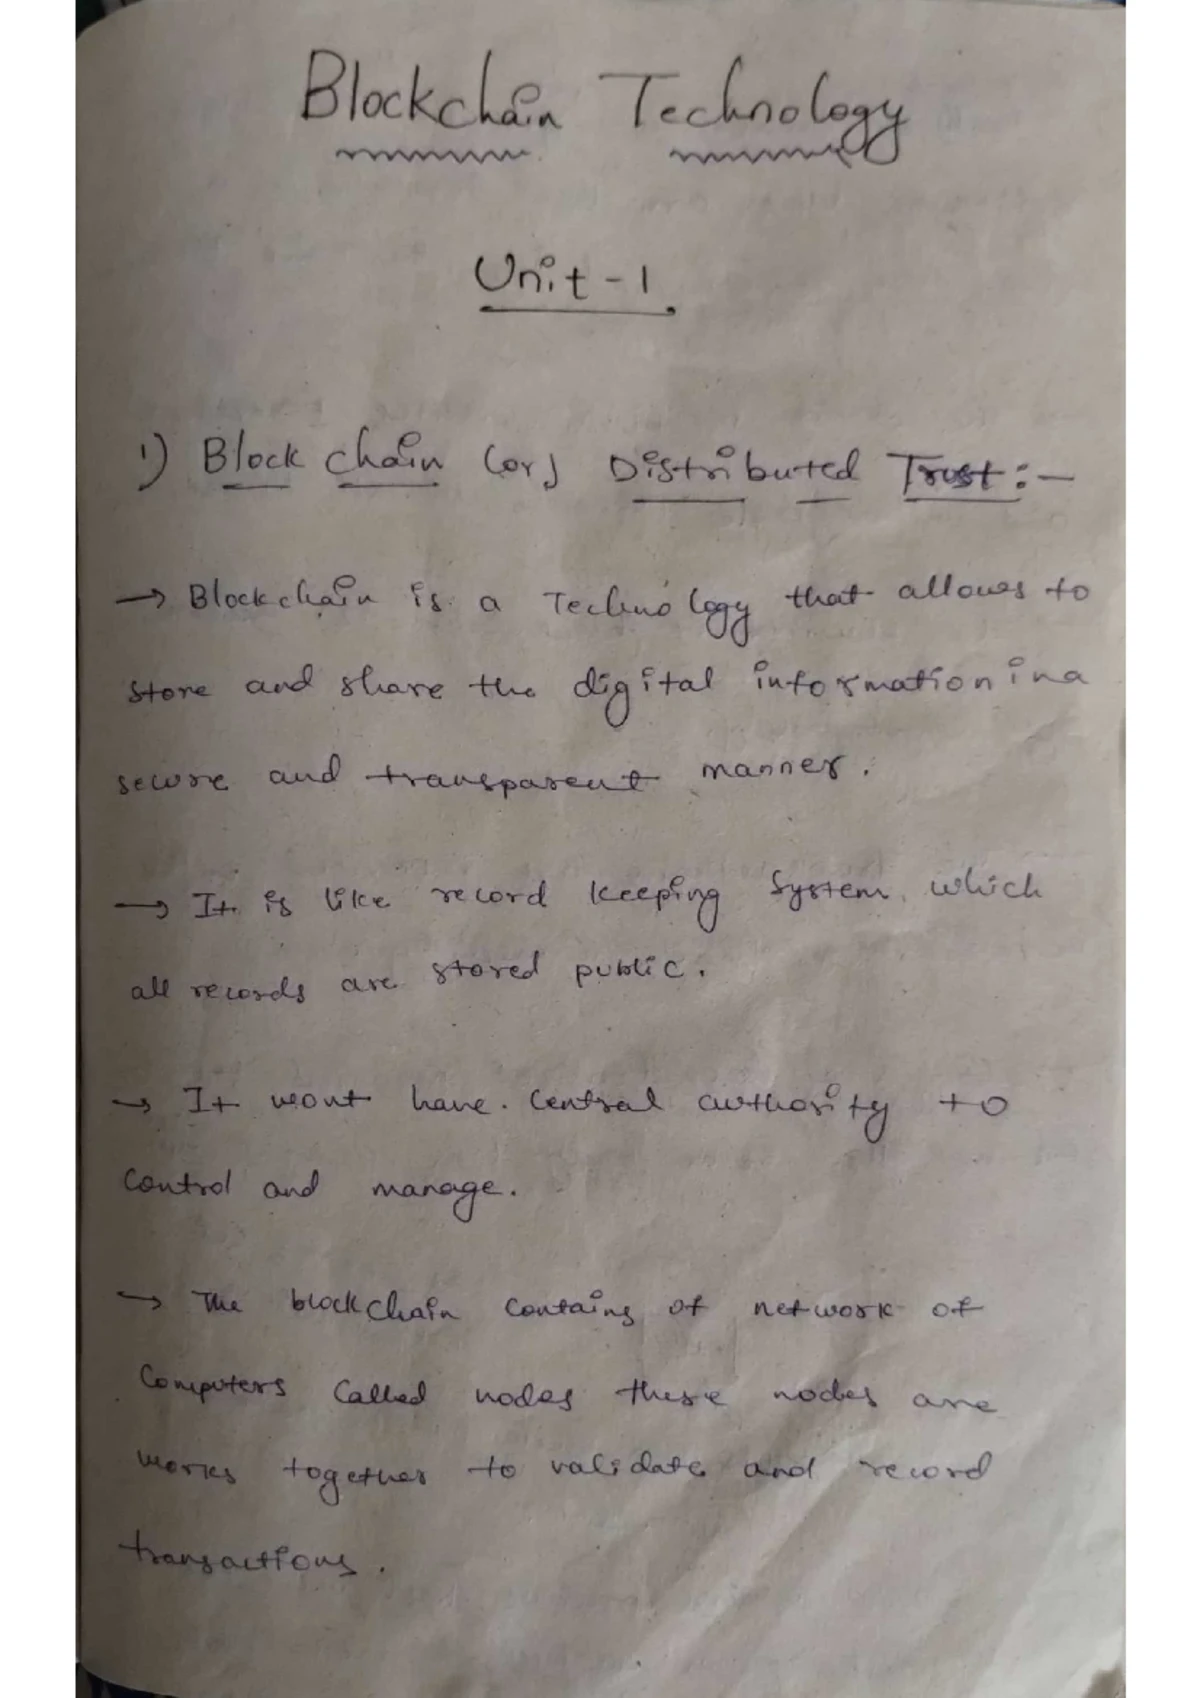 Blockchain Technology
Unit-1.
1) Block chain (or) Distributed Trust:-
→ Blockchain is a Technology that allows to
store and share the digital information in a
secure and transparent manner.
→ It is like record keeping system which
all records are stored public.
→ It wont have central authority to
Control and manage.
→ The blockchain contains of network of
Computers called nodes these nodes are
works together to validate and record
transactions.